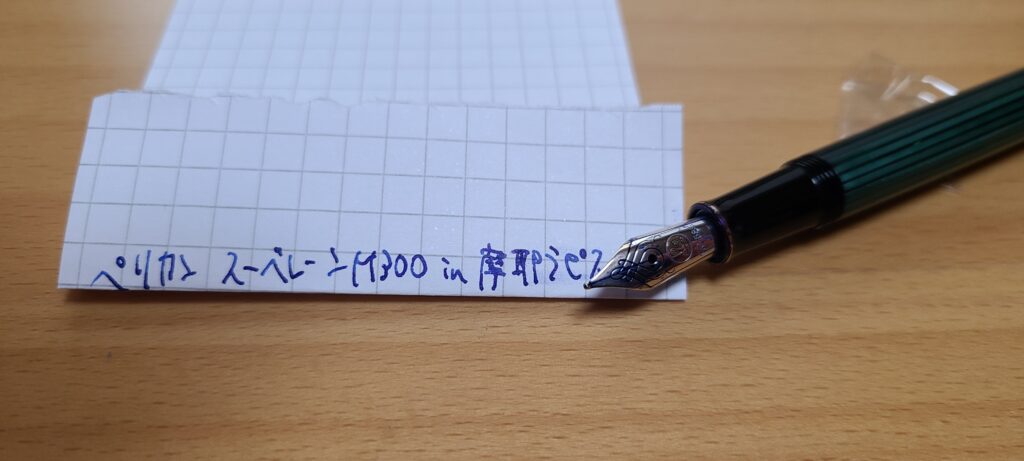 ペリカン スーベレーン M300 in 摩耶ラピス